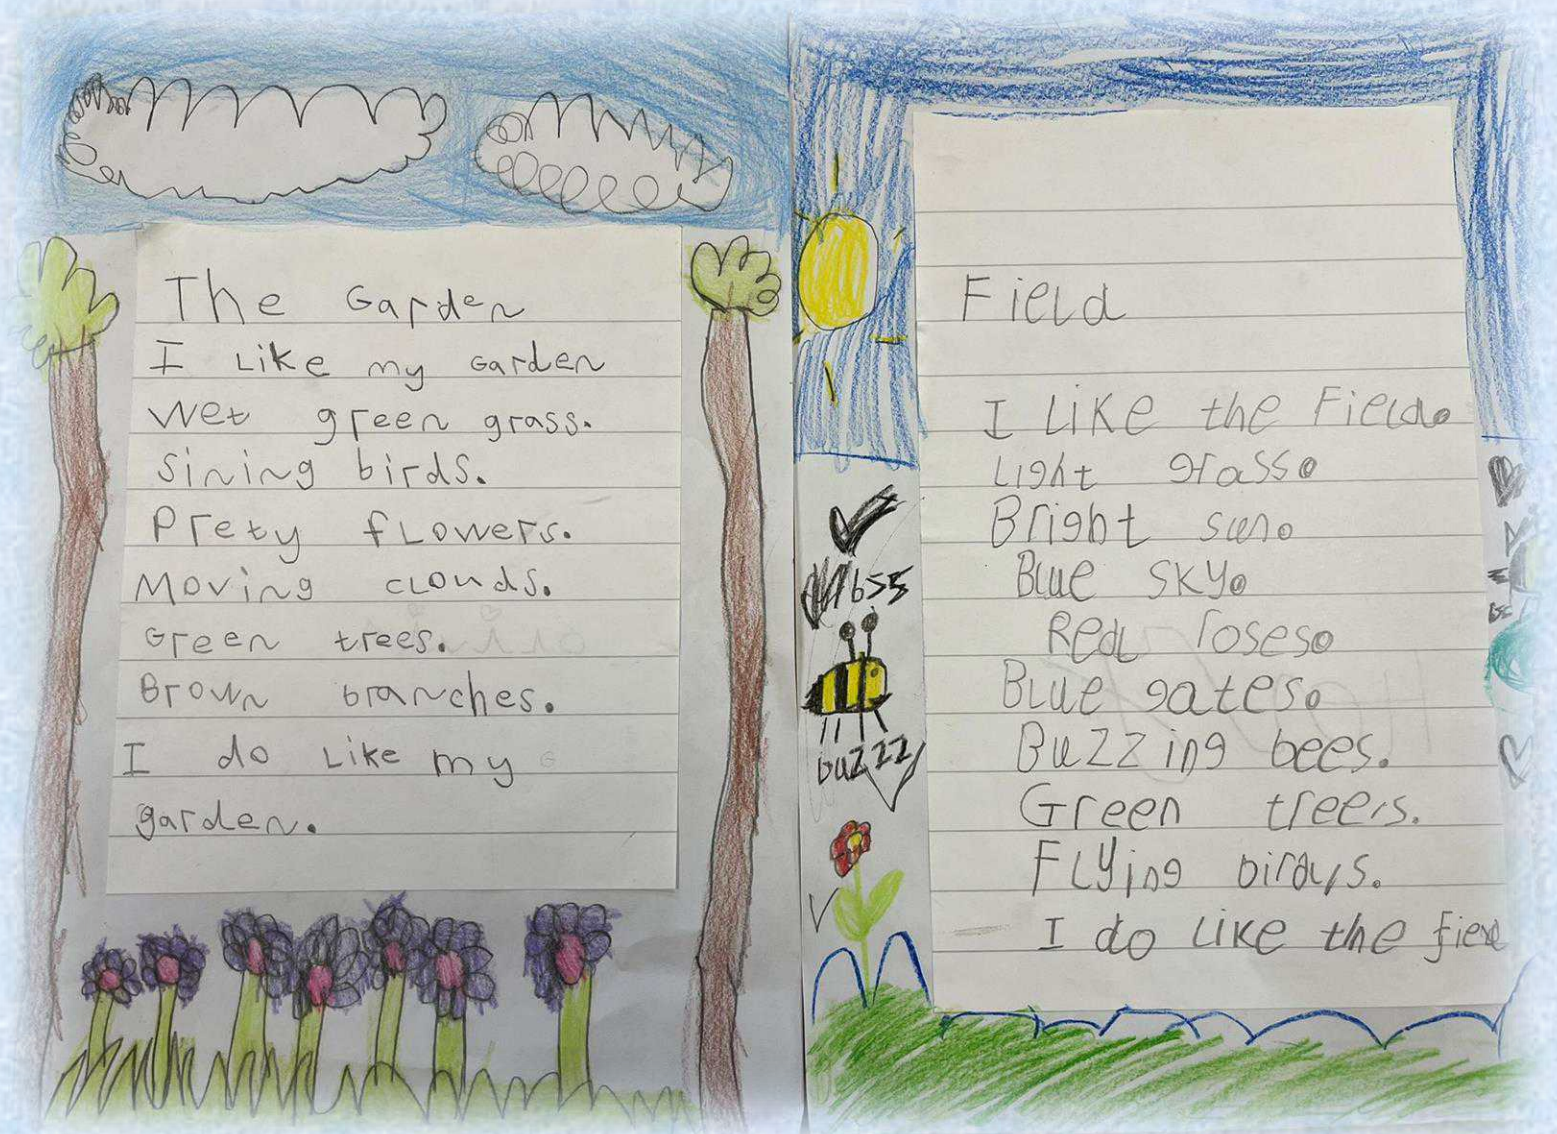 The Garden
I Like my Garden
Wet green grass.
Sining birds.
Prety flowers.
Moving clouds.
Green trees.
Brown branches.
I do Like my
garden.
Field
I Like the Field.
Light grass.
Bright sun.
Blue sky.
Red roses.
Blue gates.
Buzzing bees.
Green trees.
Flying birds.
I do like the field
buzzz